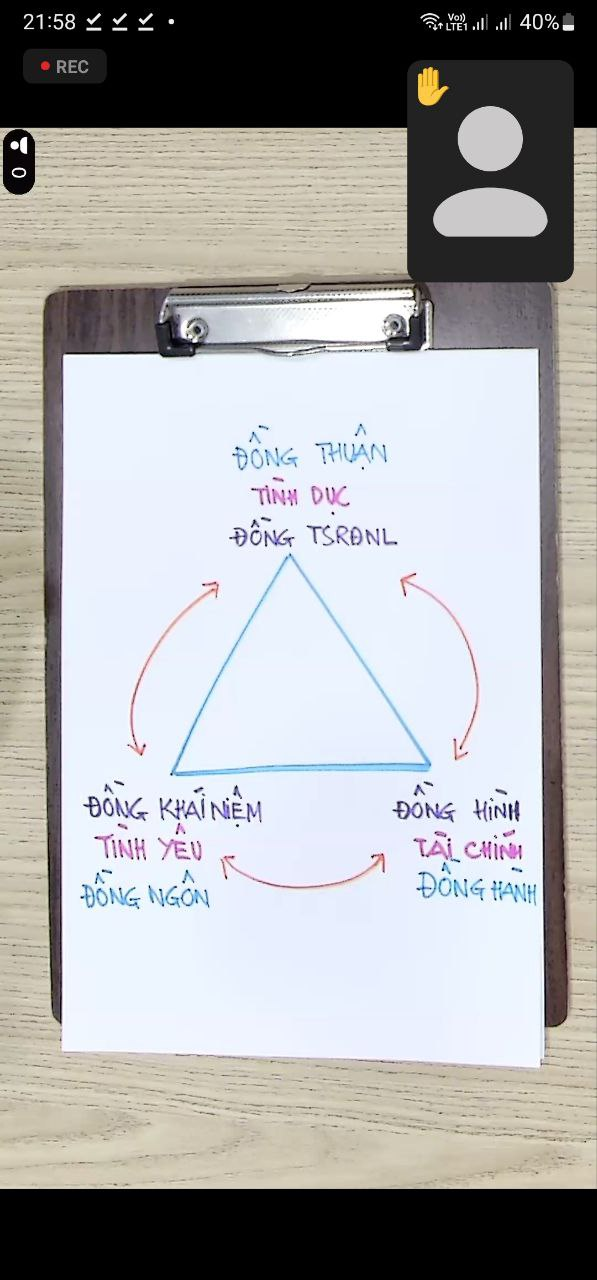 21:58
Vo))
LTE1
40%
REC
0
ĐỒNG THUẬN
TÌNH DỤC
ĐỒNG TSRĐNL
ĐỒNG KHÁI NIỆM
TÌNH YÊU
ĐỒNG NGÔN
ĐỒNG HÌNH
TÀI CHÍNH
ĐỒNG HÀNH